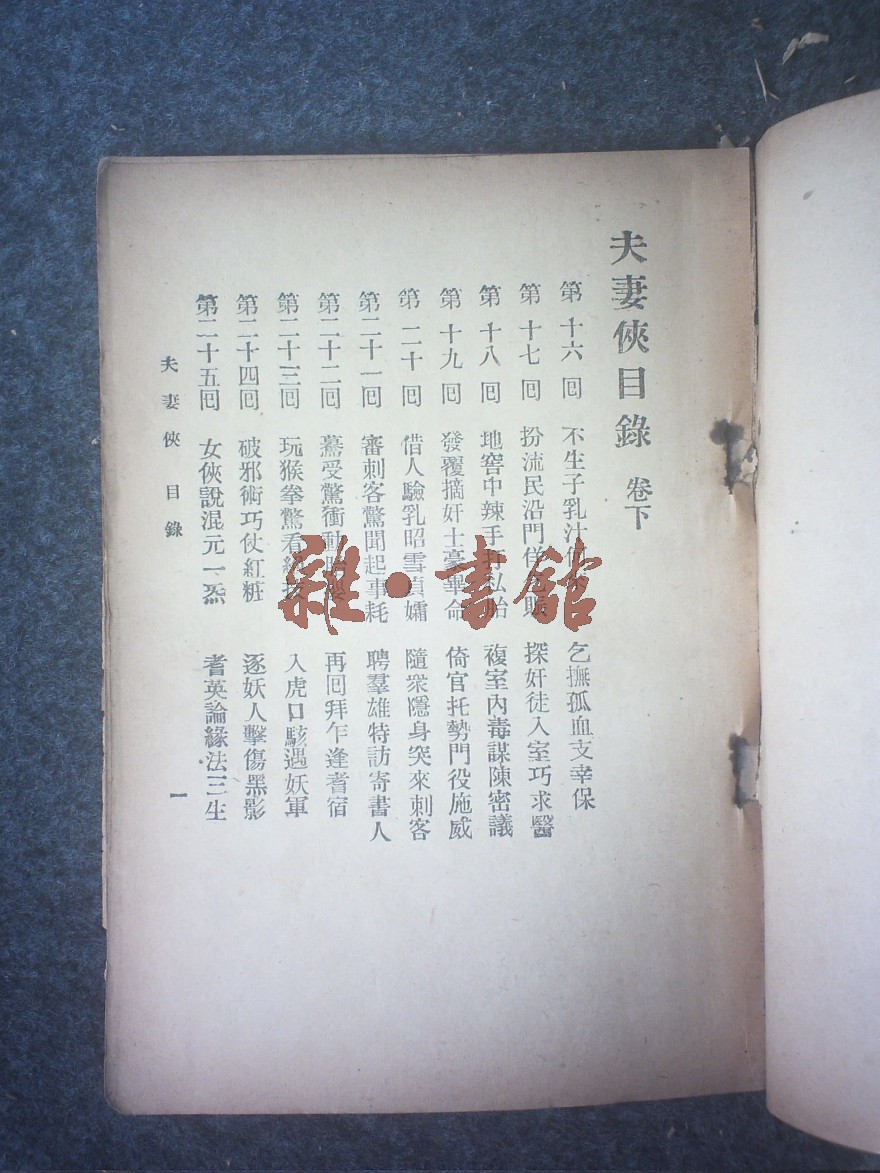 夫妻俠目錄 卷下
第十六回 不生子乳汁 乞撫孤血支幸保
第十七回 扮流民沿門佯 賑 探奸徒入室巧求醫
第十八回 地窖中辣手 私胎 複室內毒謀陳密議
第十九回 發覆摘奸土豪畢命 倚官托勢門役施威
第二十回 借人驗乳昭雪貞孀 隨衆隱身突來刺客
第二十一回 審刺客驚聞起事耗 聘羣雄特訪寄書人
第二十二回 驀受驚衝動胎 再回拜乍逢耆宿
第二十三回 玩猴拳驚看 入虎口駭遇妖軍
第二十四回 破邪術巧仗紅粧 逐妖人擊傷黑影
第二十五回 女俠說混元一炁 耆英論緣法三生
夫妻俠 目錄 一
雜·書館